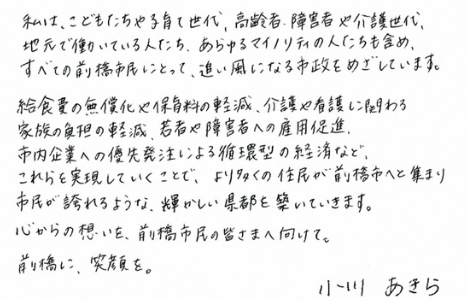 私は、こどもたちや子育て世代、高齢者・障害者や介護世代、
地元で働いている人たち、あらゆるマイノリティの人たちも含め、
すべての前橋市民にとって、追い風になる市政をめざしています。
給食費の無償化や保育料の軽減、介護や看護に関わる
家族の負担の軽減、若者や障害者への雇用促進、
市内企業への優先発注による循環型の経済など、
これらを実現していくことで、より多くの住民が前橋市へと集まり
市民が誇れるような、輝かしい県都を築いていきます。
心からの想いを、前橋市民の皆さまへ向けて。
前橋に、笑顔を。
小川 あきら